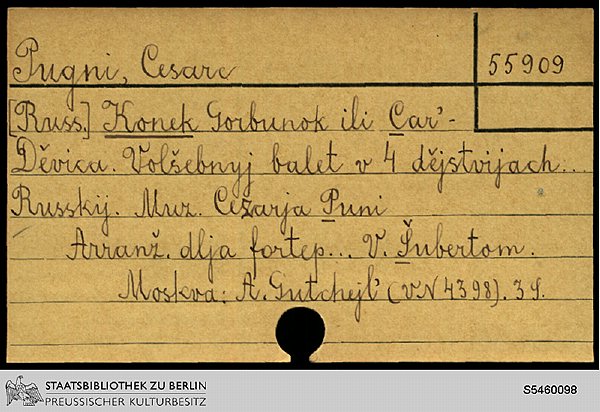 Pugni, Cesare
55909
[Russ.] Konek Gorbunok ili Car'-
Děvica. Volšebnyj balet v 4 dějstvijach...
Russkij. Muz. Cezarja Puni
Arranž. dlja fortep... V. Šubertom.
Moskva: A. Gutchejl' (VN 4398). 39.
STAATSBIBLIOTHEK ZU BERLIN
PREUSSISCHER KULTURBESITZ
S5460098